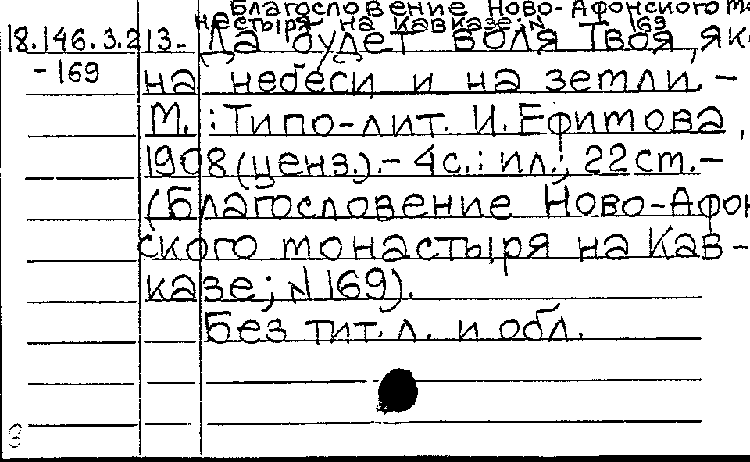 Благословение Ново-Афонского мо
настыря на Кавказе; N 169
18.146.3.213- Да будет воля Твоя, як
-169 на небеси и на земли. -
М.: Типо-лит. И. Ефимова,
1908 (ценз.). - 4 с.: ил.; 22 см. -
(Благословение Ново-Афон
ского монастыря на Кав-
казе; N 169).
Без тит. л. и обл.